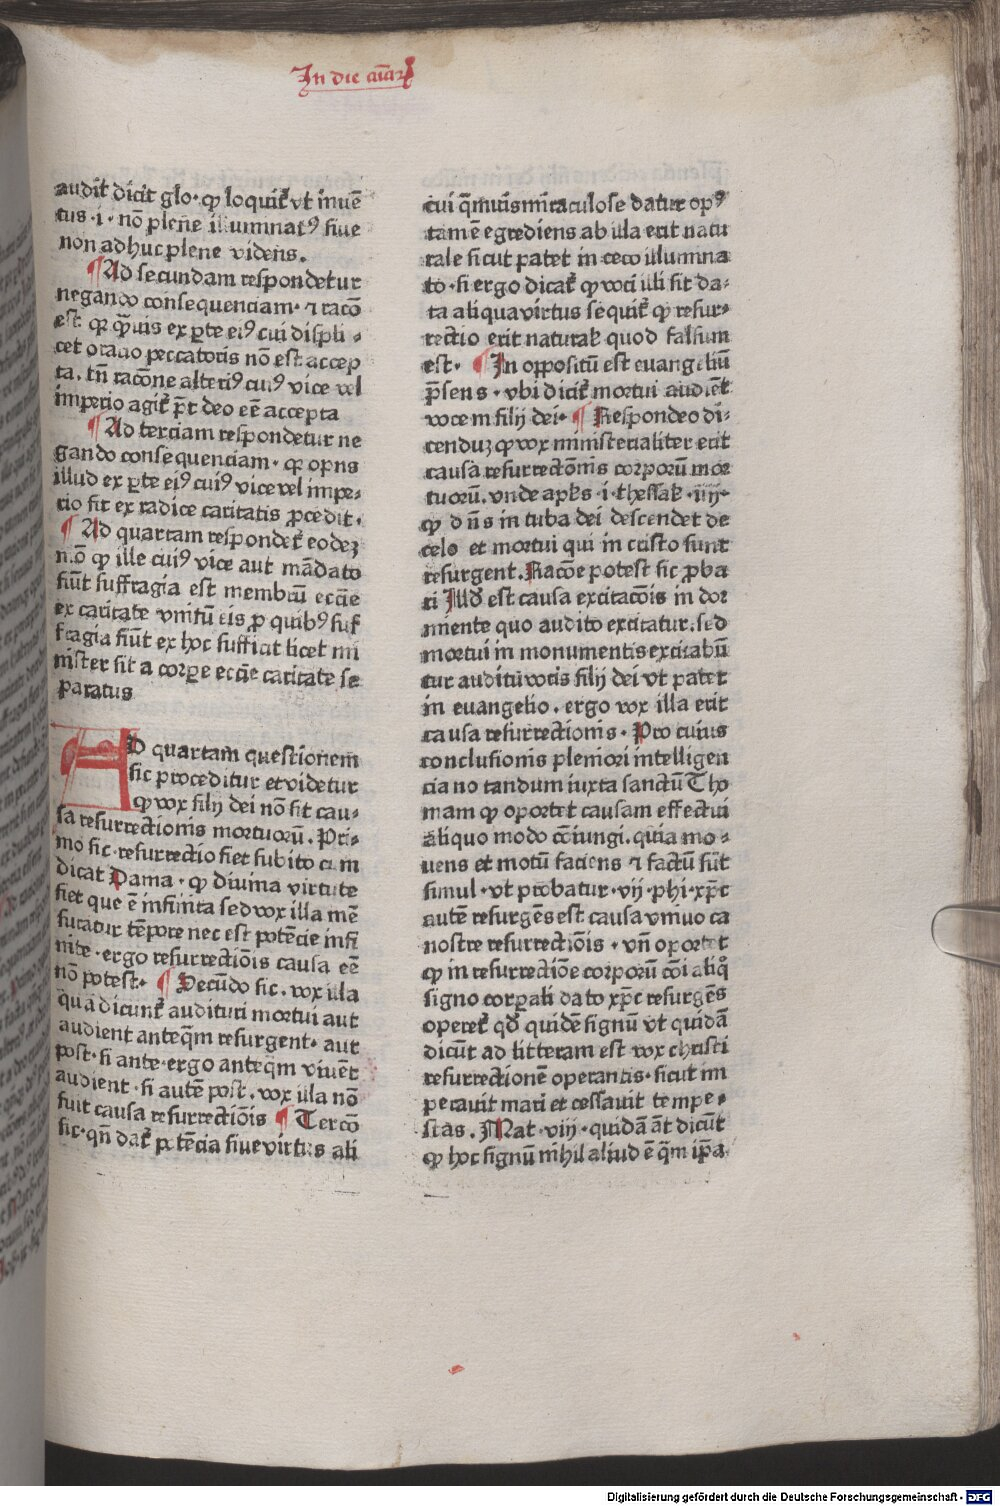 In die aīar
audit dicit glo· ꝙ loquit᷑ vt inuē
tus·i· nō plene illuminatꝰ siue
non adhuc plene videns.
¶ Ad secundam respondetur
negando consequenciam· ⁊ racō
est qꝛ q̄uis ex ꝑte eiꝰ cui displi⸗
cet oracio peccatoris nō est accep
ta. tn̄ racōne alteriꝰ cuiꝰ vice vel
imperio agit᷑ p̄t deo eē accepta
¶ Ad terciam respondetur ne
gando consequenciam· qꝛ opns
illud ex ꝑte eiꝰ cuiꝰ vice vel impe⸗
rio fit ex radice caritatis ꝓcedit.
¶ Ad quartam respondet᷑ eodeꝫ
mō ꝙ ille cuiꝰ vice aut mādato
fiūt suffragia est membrū eccīe
ex caritate vnitū eis ꝓ quibꝰ suf
fragia fiūt ex hoc sufficit licet mi
nister sit a corꝑe eccīe caritate se
paratus
AD quartam questionem
sic proceditur et videtur
ꝙ vox filij dei nō sit cau⸗
sa resurrectionis mortuorū. Pri⸗
mo sic·resurrectio fiet subito cum
dicat Dama· ꝙ diuina virtute
fiet que ē infinita sed vox illa mē
suratur tēpore nec est potēcie infi
nite·ergo resurrectiōis causa eē
nō potest· ¶ Secūdo sic. vox illa
quā dicunt᷑ audituri mortui aut
audient anteq̄m resurgent· aut
post·si ante·ergo anteq̄m viuēt
audient·si autē post. vox illa nō
fuit causa resurrectiōis ¶ Tercō
sic·qn̄ dat᷑ potēcia siue virtus ali
cui q̄muis miraculose datur opꝰ
tamē egrediens ab illa erit natu
rale sicut patet in ceco illumina
to·si ergo dicat᷑ ꝙ voci illi sit da⸗
ta aliqua virtus sequit᷑ ꝙ resur⸗
rectio erit naturaƚ quod falsum
est· ¶ In oppositū est euangeliū
p̄sens·vbi dicit᷑ mortui audiēt
vocem filij dei· ¶ Respondeo di⸗
cenduꝫ ꝙ vox ministerialiter erit
causa resurrectōnis corporū mor
tuorū. vnde apƚs·i·thessaƚ·iiij·
ꝙ dn̄s in tuba dei descendet de
celo et mortui qui in cristo sunt
resurgent. Racōe potest sic ꝓba
ri Illđ est causa excitacōis in dor
miente quo audito excitatur.sed
mortui in monumentis excitabū
tur auditū vocis filij dei vt patet
in euangelio. ergo vox illa erit
causa resurrectionis· Pro cuius
conclusionis pleniori intelligen
cia notandum iuxta sanctū Tho
mam ꝙ oportet causam effectui
aliquo modo cōiungi. quia mo⸗
uens et motū faciens ⁊ factū sūt
simul·vt probatur·vij·phi·xp̄c
autē resurgēs est causa vniuoca
nostre resurrectiōis·vn̄ oportet
ꝙ in resurrectiōe corporū cōi aliq̊
signo corꝑali dato xp̄c resurgēs
operet᷑ qđ quidē signū vt quidā
dicūt ad litteram est vox christi
resurrectionē operantis·sicut im
perauit mari et cessauit tempe⸗
stas. Mat·viij·quidā āt dicūt
ꝙ hoc signū nihil aliud ē q̄m ip̄a
Digitalisierung gefördert durch die Deutsche Forschungsgemeinschaft - DFG